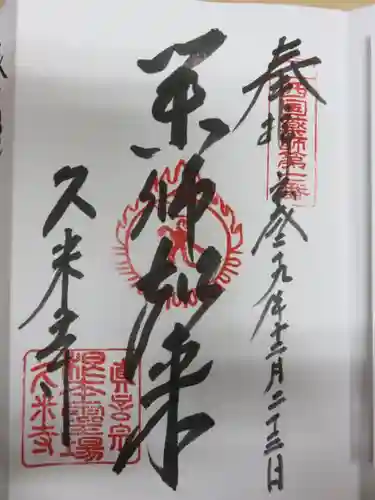 奉拝
西国薬師第七番
平成二十九年十二月二十三日
薬師如来
久米寺
真言宗
根本霊場
久米寺